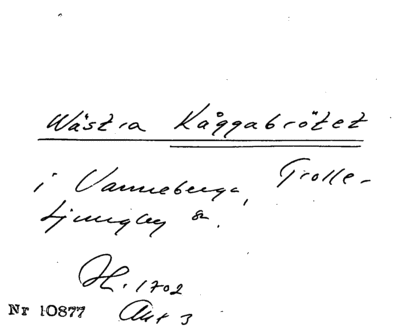 Wästra Kåggabrötet
i Vanneberga, Trolle-
Ljungby sn.
H. 1702
Akt 3
Nr 10877